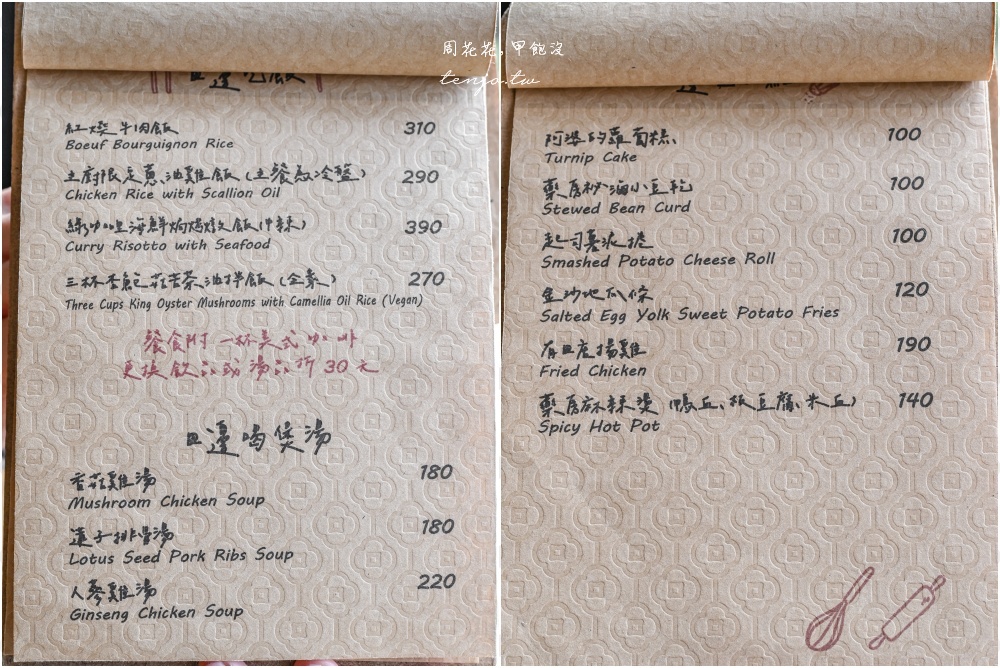 周花花，甲飽沒
tenjo.tw
紅燒牛肉飯 310
Boeuf Bourguignon Rice
主廚限定蔥油雞飯(主餐為冷盤) 290
Chicken Rice with Scallion Oil
綠咖哩海鮮焗烤燉飯(中辣) 390
Curry Risotto with Seafood
三杯杏鮑菇苦茶油拌飯(全素) 270
Three Cups King Oyster Mushrooms with Camellia Oil Rice (Vegan)
餐食附一杯美式咖啡
更換飲品或湯品折30元
邊喝煲湯
香菇雞湯 180
Mushroom Chicken Soup
蓮子排骨湯 180
Lotus Seed Pork Ribs Soup
人蔘雞湯 220
Ginseng Chicken Soup
阿婆的蘿蔔糕 100
Turnip Cake
藥房秘滷小豆乾 100
Stewed Bean Curd
起司薯泥捲 100
Smashed Potato Cheese Roll
金沙地瓜條 120
Salted Egg Yolk Sweet Potato Fries
唐揚雞 190
Fried Chicken
藥房麻辣燙(鴨血、板豆腐、米血) 140
Spicy Hot Pot